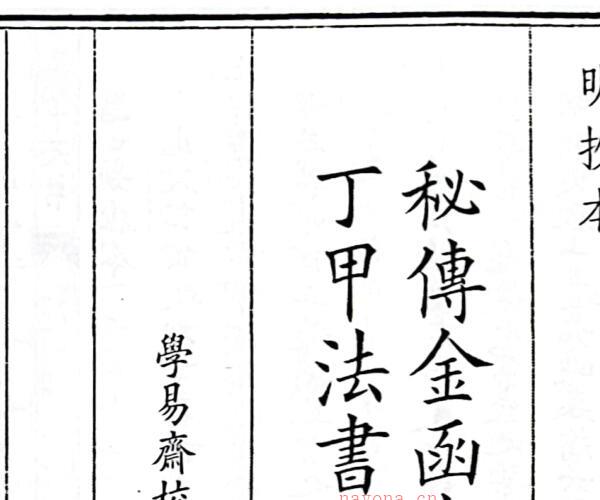 明抄本
秘傳金函
丁甲法書
學易齋校
nayona.cn